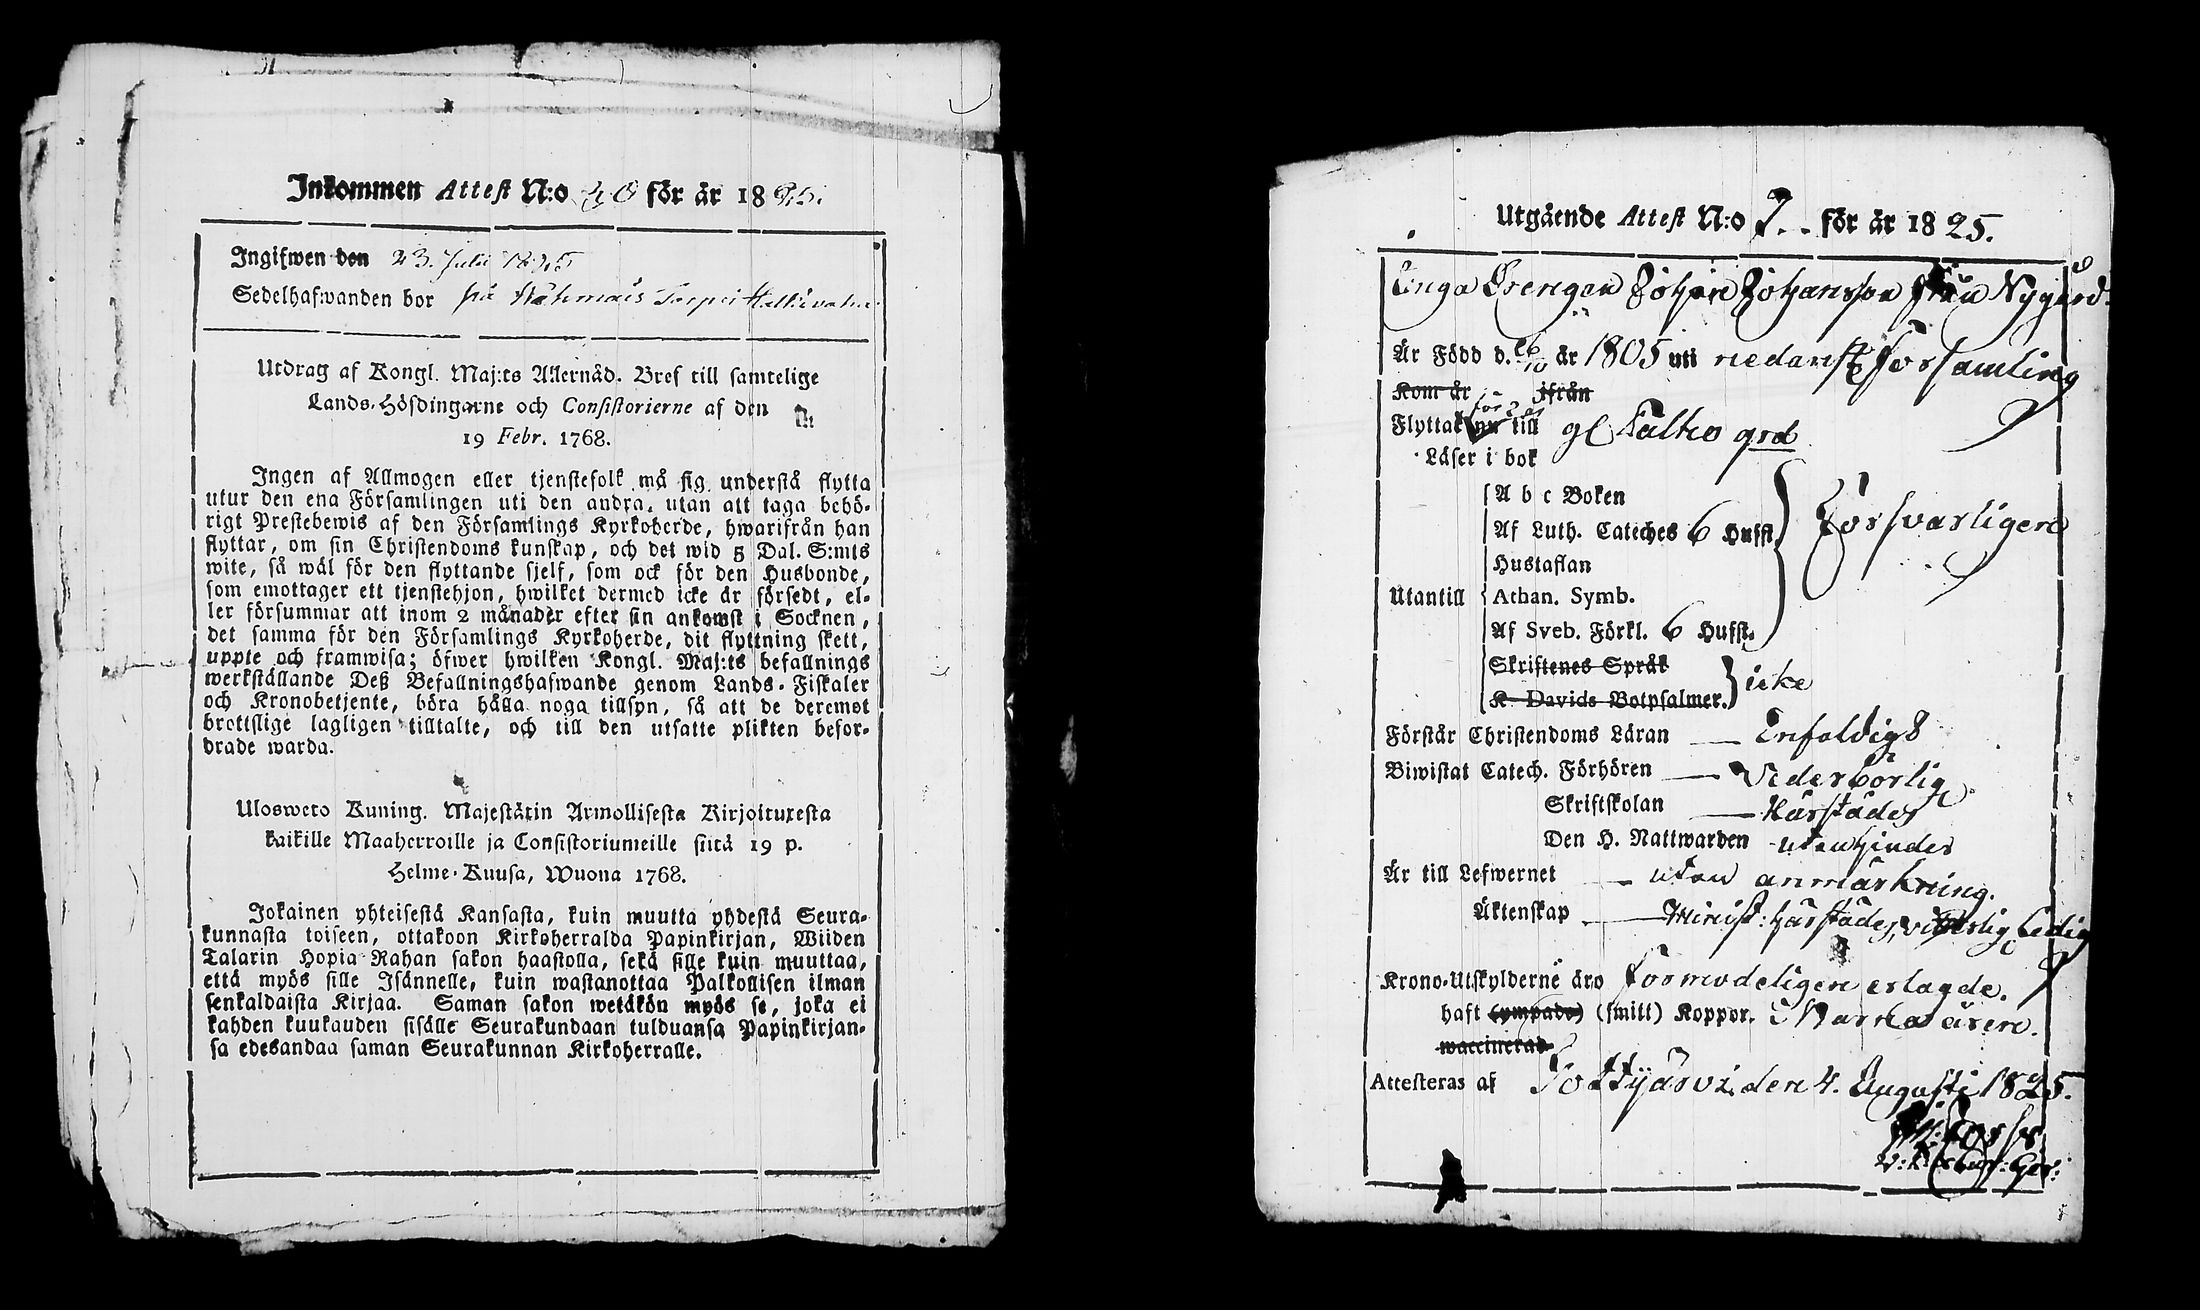 Inkommen Attest N:o 40 för år 1825.
Ingifwen den 23. Julii 1825
Sedelhafwanden bor på Torp i
Utdrag af Kongl. Maj:ts Allernåd. Bref till samtelige
Lands-Höfdingarne och Consistorierne af den
19 Febr. 1768.
Ingen af Allmogen eller tjenstefolk må sig understå flytta
utur den ena Församlingen uti den andra, utan att taga behö-
rigt Prestebewis af den Församlings Kyrkoherde, hwarifrån han
flyttar, om sin Christendoms kunskap, och det wid 5 Dal. S:mts
wite, så wäl för den flyttande sjelf, som ock för den Husbonde,
som emottager ett tjenstehjon, hwilket dermed icke är försedt, el-
ler försummar att inom 2 månader efter sin ankomst i Socknen,
det samma för den Församlings Kyrkoherde, dit flyttning skett,
uppte och framwisa; öfwer hwilken Kongl. Maj:ts befallnings
werkställande Deß Befallningshafwande genom Lands-Fiskaler
och Kronobetjente, böra hålla noga tillsyn, så att de deremot
brottslige lagligen tilltalte, och till den utsatte plikten befor-
drade warda.
Ulosweto Kuning. Majestätin Armollisesta Kirjoituxesta
kaikille Maaherroille ja Consistoriumeille siitä 19 p.
Helme-Kuusa, Wuona 1768.
Jokainen yhteisestä Kansasta, kuin muutta yhdestä Seura-
kunnasta toiseen, ottakoon Kirkoherralda Papinkirjan, Wiiden
Talarin Hopia-Rahan sakon haastolla, sekä sille kuin muuttaa,
että myös sille Isännelle, kuin wastanottaa Palkollisen ilman
senkaldaista Kirjaa. Saman sakon wetäkön myös se, joka ei
kahden kuukauden sisälle Seurakundaan tulduansa Papinkirjan-
sa edesandaa saman Seurakunnan Kirkoherralle.
Utgående Attest N:o 7. för år 1825.
Unga Drengen Johan Johansson från Nygård
Är Född d. 26/10 år 1805 uti nedanst. församling
Kom år ifrån
Flyttat nu till gl Kalko grd
Läser i bok
A b c Boken
Af Luth. Cateches 6 Hufst. Försvarligen
Hustaflan
Utantill Athan. Symb.
Af Sveb. Förkl. 6 Hufst.
Skriftenes Språk
K. Davids Botpsalmer. icke
Förstår Christendoms Läran Enfaldigt
Biwistat Catech. Förhören Vederbörlig
Skriftskolan Härstädes
Den H. Nattwarden utan hinder
Är till Lefwernet utan anmärkning.
Äktenskap Minist: härstädes, ledig
Krono-Utskylderne äro förmodeligen erlagde.
haft (ympade) (smitt) Koppor. i Barna åren.
waccinerad
Attesteras af Tottijärvi den 4. Augusti 1825.